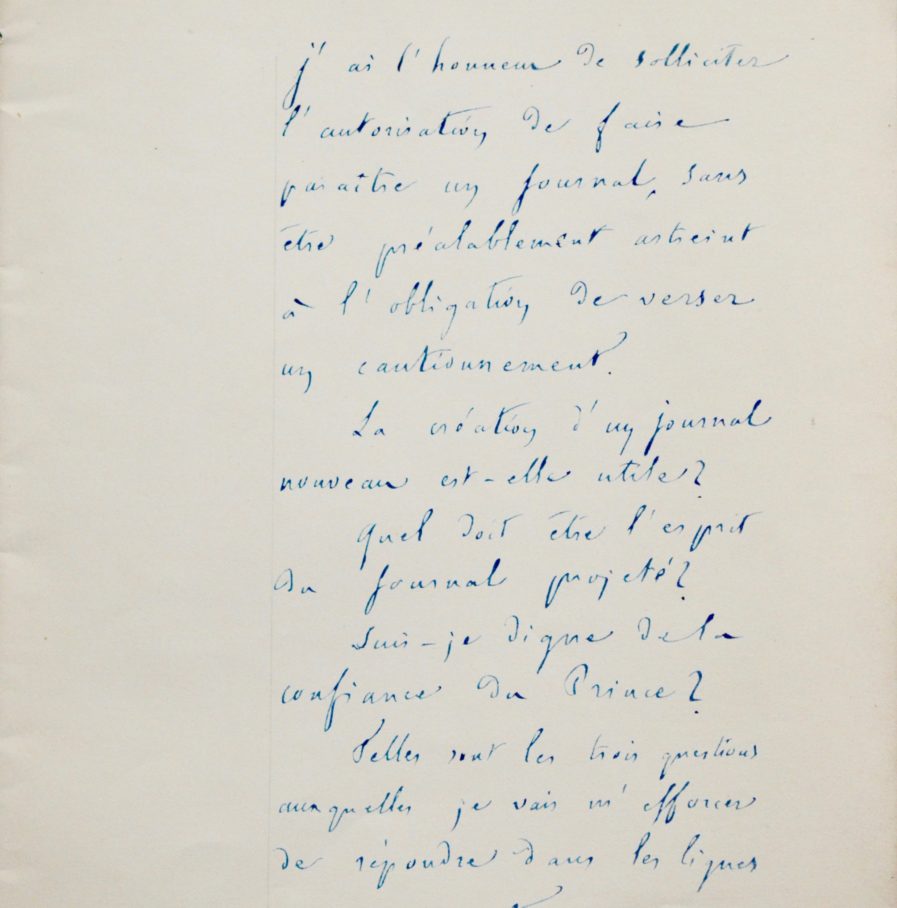 j'ai l'honneur de solliciter
l'autorisation de faire
paraître un journal, sans
être préalablement astreint
à l'obligation de verser
un cautionnement.
La création d'un journal
nouveau est-elle utile?
Quel doit être l'esprit
du journal projeté?
Suis-je digne de la
confiance du Prince?
Telles sont les trois questions
auxquelles je vais m'efforcer
de répondre dans les lignes